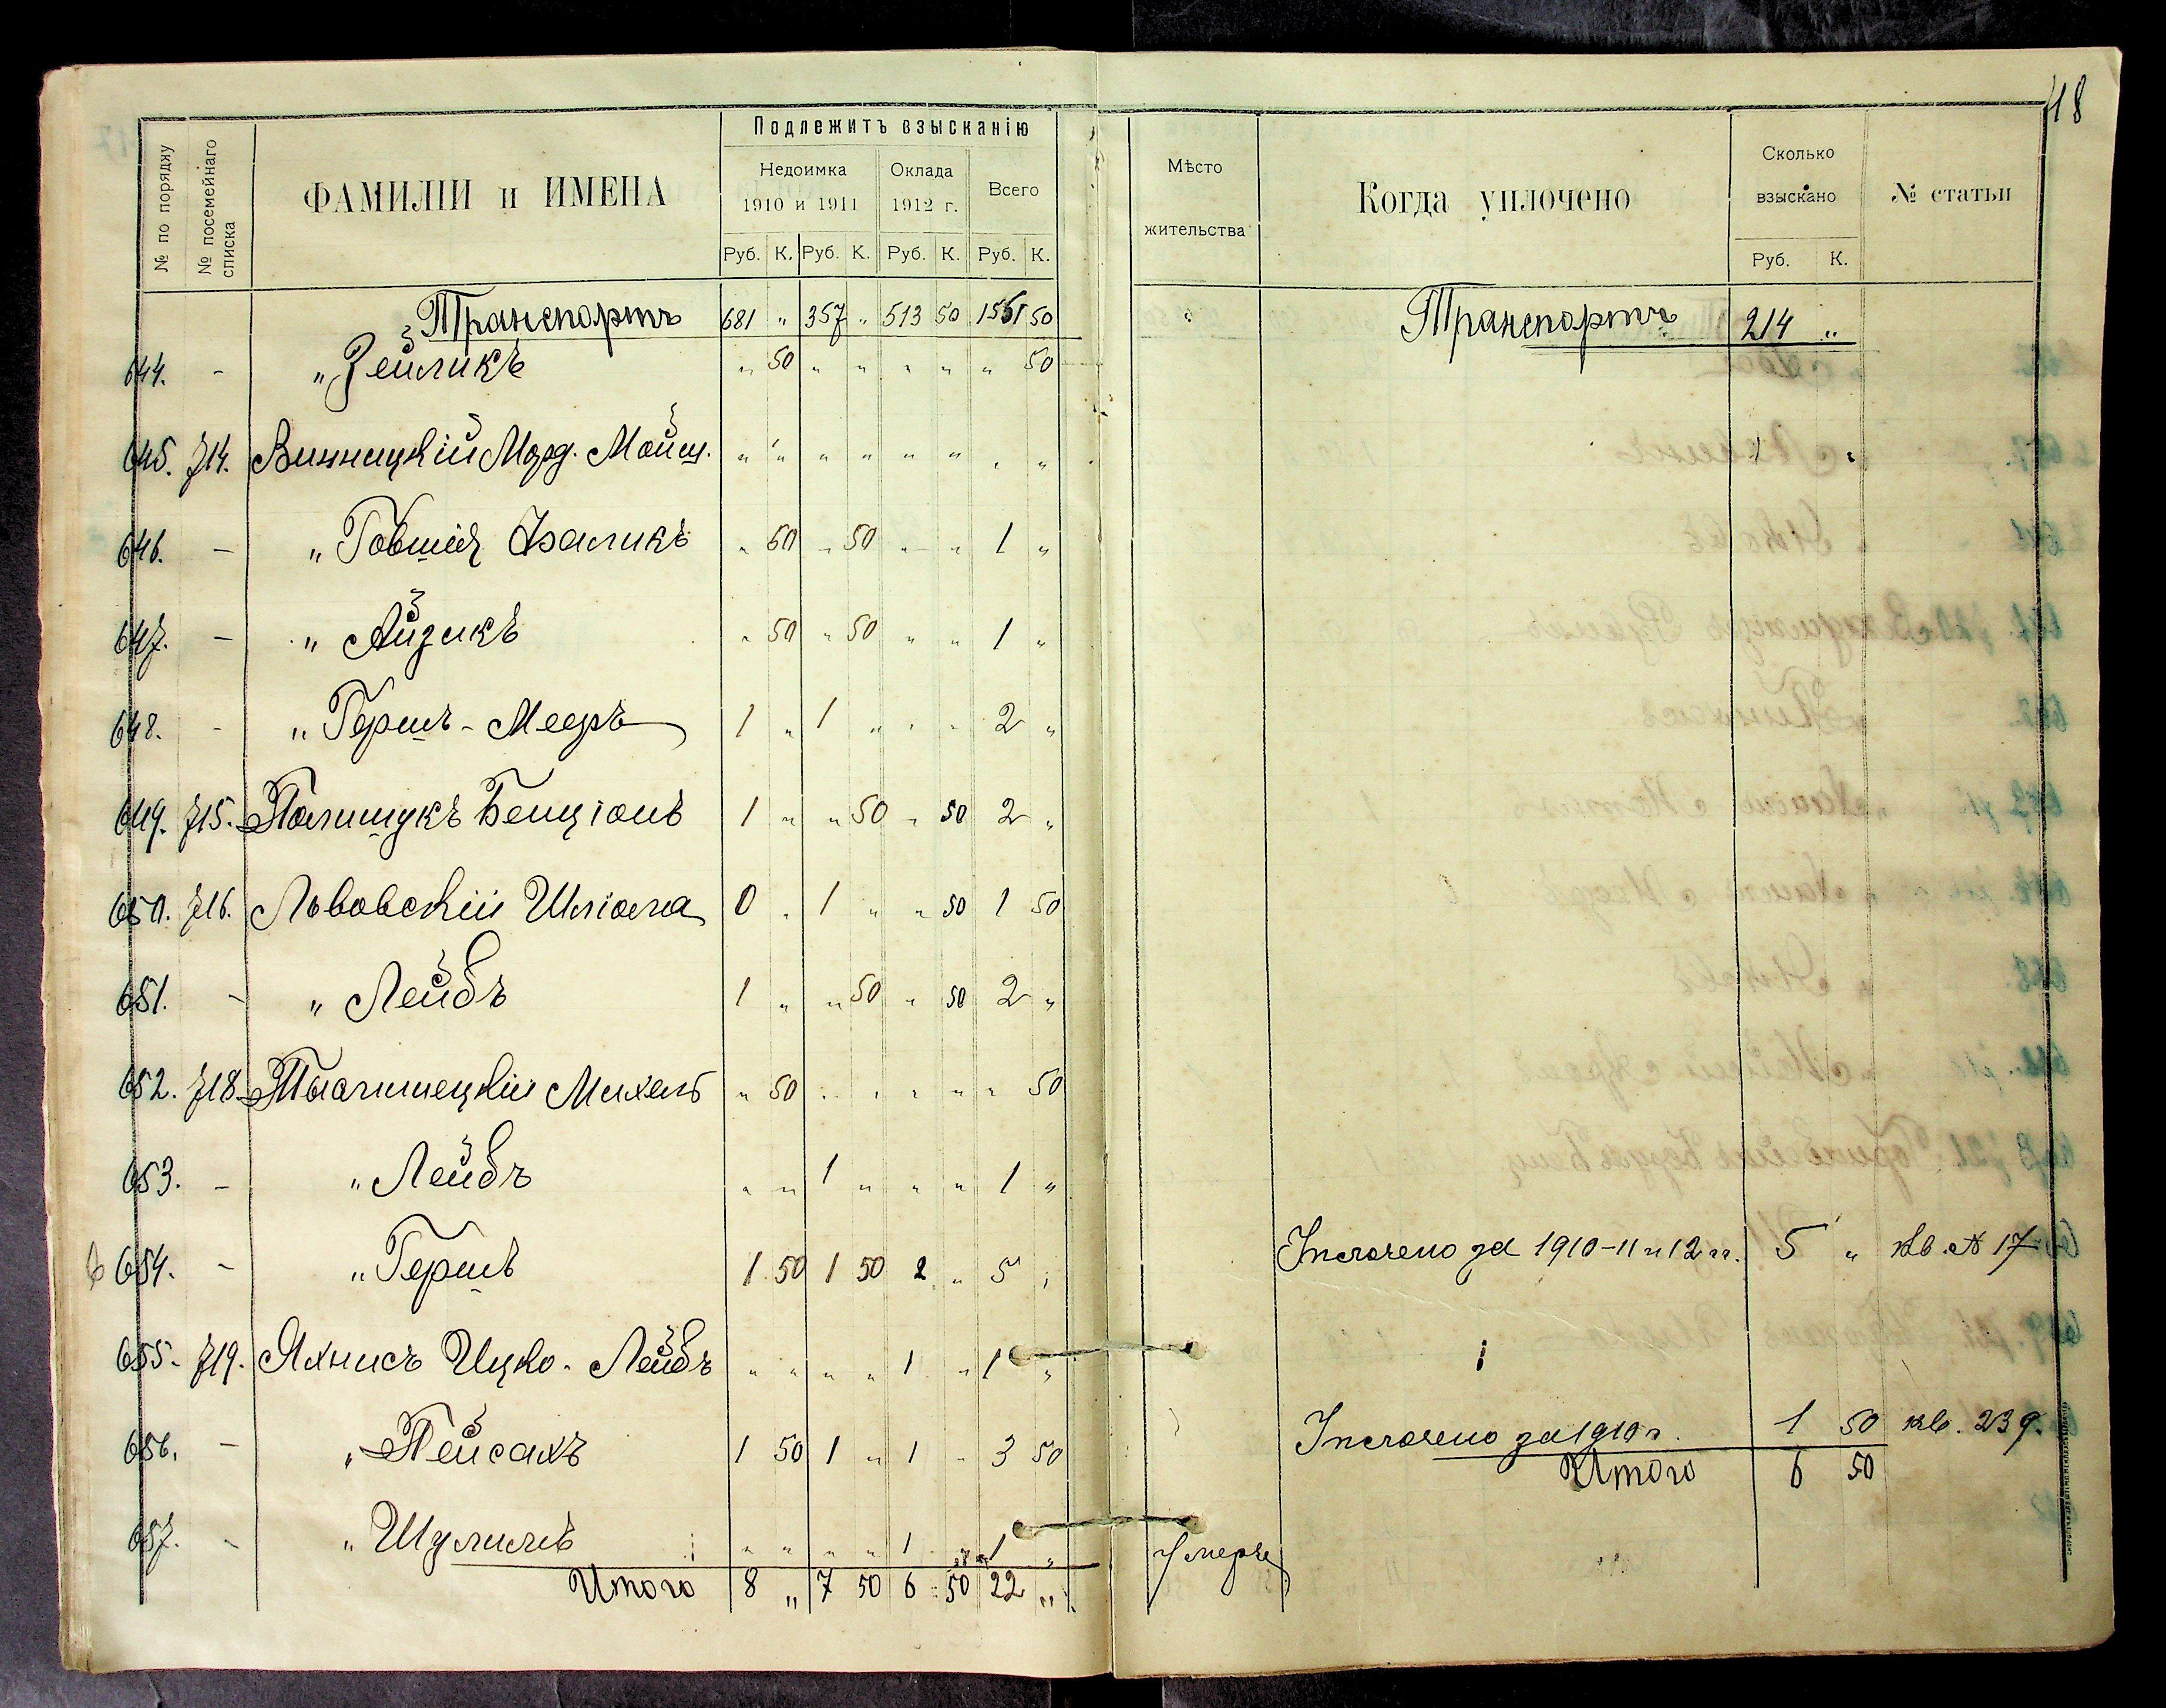 18
№ по порядку
№ посемейнаго списка
ФАМИЛІИ и ИМЕНА
Подлежитъ взысканію
Недоимка 1910 и 1911
Оклада 1912 г.
Всего
Руб. К. Руб. К. Руб. К. Руб. К.
Мѣсто жительства
Когда уплочено
Сколько взыскано
Руб. К.
№ статьи
Транспортъ 681 " 357 " 513 50 1551 50 Транспортъ 214 "
644. - " Зейликъ " 50 " " " " " 50
645. 714. Винницкій Морд. Мойш. " " " " " " " "
646. - " Говшій Фаликъ " 50 " 50 " " 1 "
647. - " Айзикъ " 50 " 50 " " 1 "
648. - " Гершъ-Мееръ 1 " 1 " " " 2 "
649. 715. Полищукъ Бенціонъ 1 " " 50 " 50 2 "
650. 716. Львовскій Шліома 0 " 1 " " 50 1 50
651. - " Лейбъ 1 " " 50 " 50 2 "
652. 718. Михель " 50 " " " " " 50
653. - " Лейбъ " " 1 " " " 1 "
654. - " Гершъ 1 50 1 50 2 " 5 " Уплочено за 1910-11 и 12 гг. 5 " кв. № 17
655. 719. Яхнисъ Ицко-Лейбъ " " " " 1 " 1 "
656. - " Пейсахъ 1 50 1 " 1 " 3 50 Уплочено за 1910 г. 1 50 кв. 239.
Итого 6 50
657. - " Шулимъ " " " " 1 " 1 " Умеръ
Итого 8 " 7 50 6 50 22 "